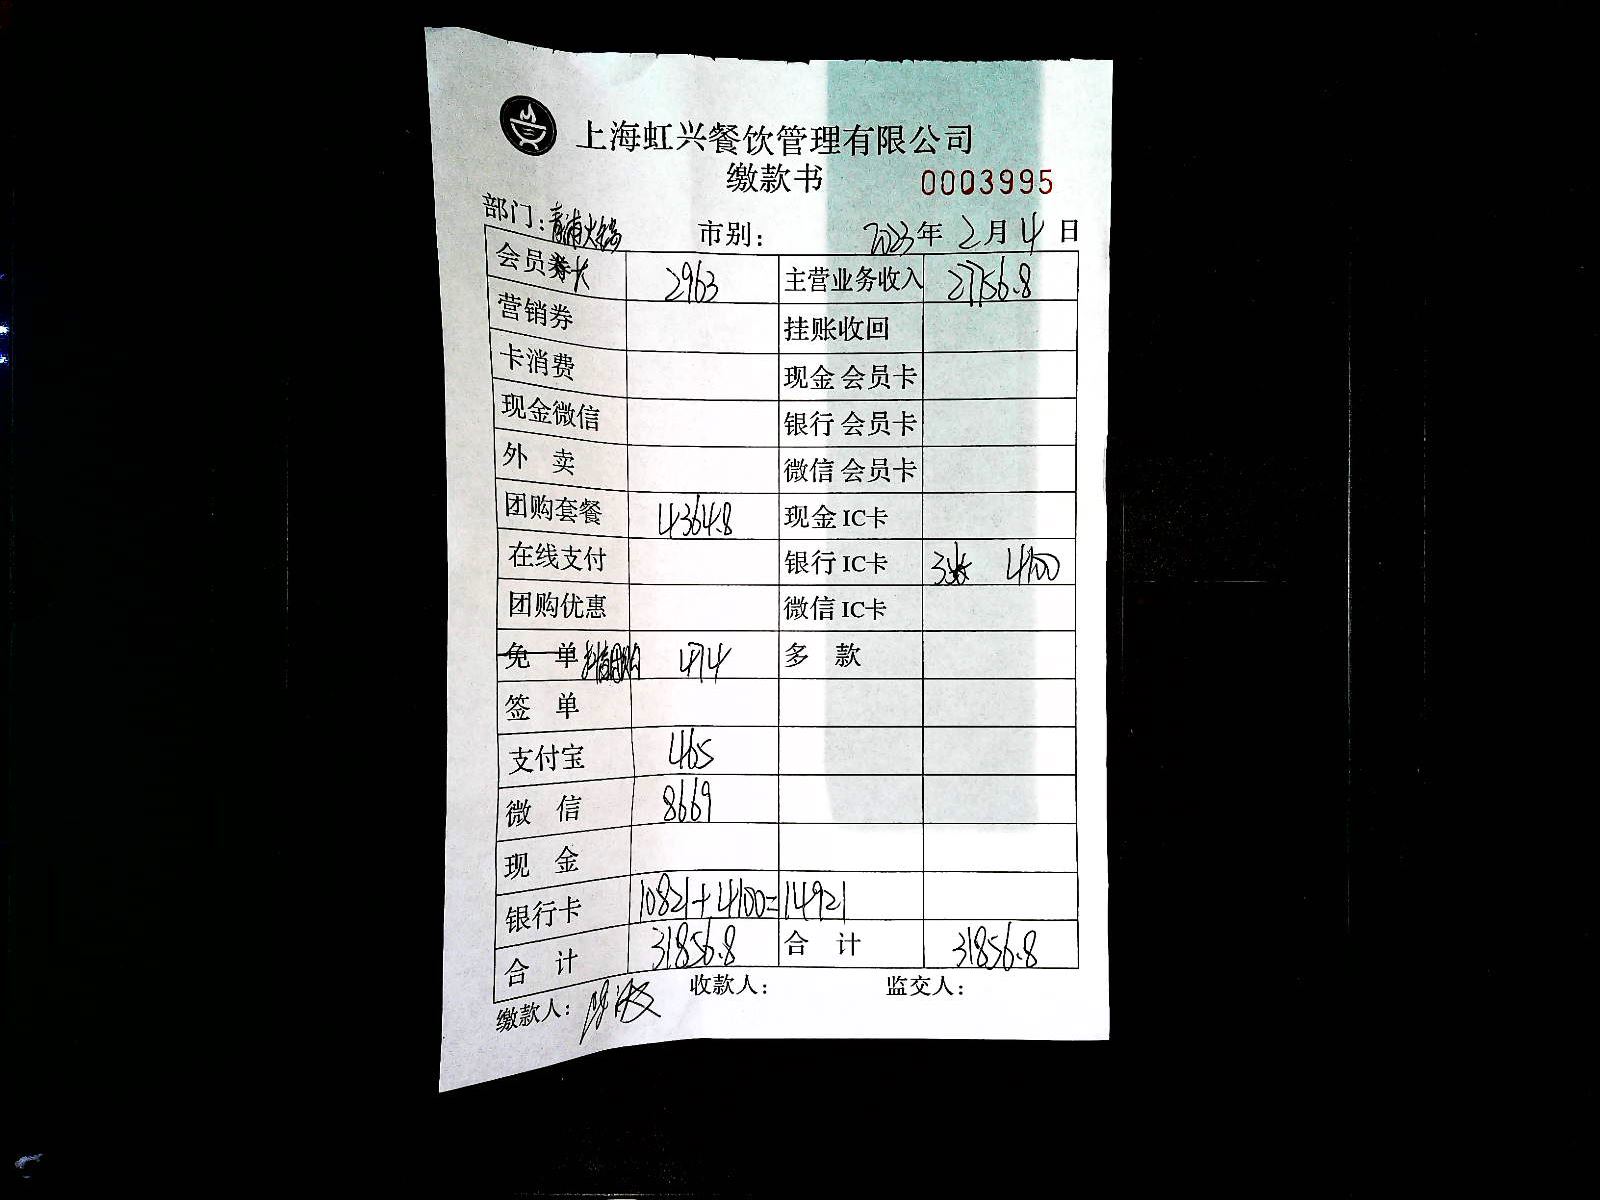 上海虹兴餐饮管理有限公司
缴款书 0003995
部门:青浦火锅 市别: 2023年2月4日
会员卡 2963 主营业务收入 27756.8
营销券 挂账收回
卡消费 现金会员卡
现金微信 银行会员卡
外卖 微信会员卡
团购套餐 4364.8 现金IC卡
在线支付 银行IC卡 3张 4100
团购优惠 微信IC卡
免单 抖音团购 474 多款
签单
支付宝 465
微信 8669
现金
银行卡 10821+4100=14921
合计 31856.8 合计 31856.8
缴款人: 收款人: 监交人: